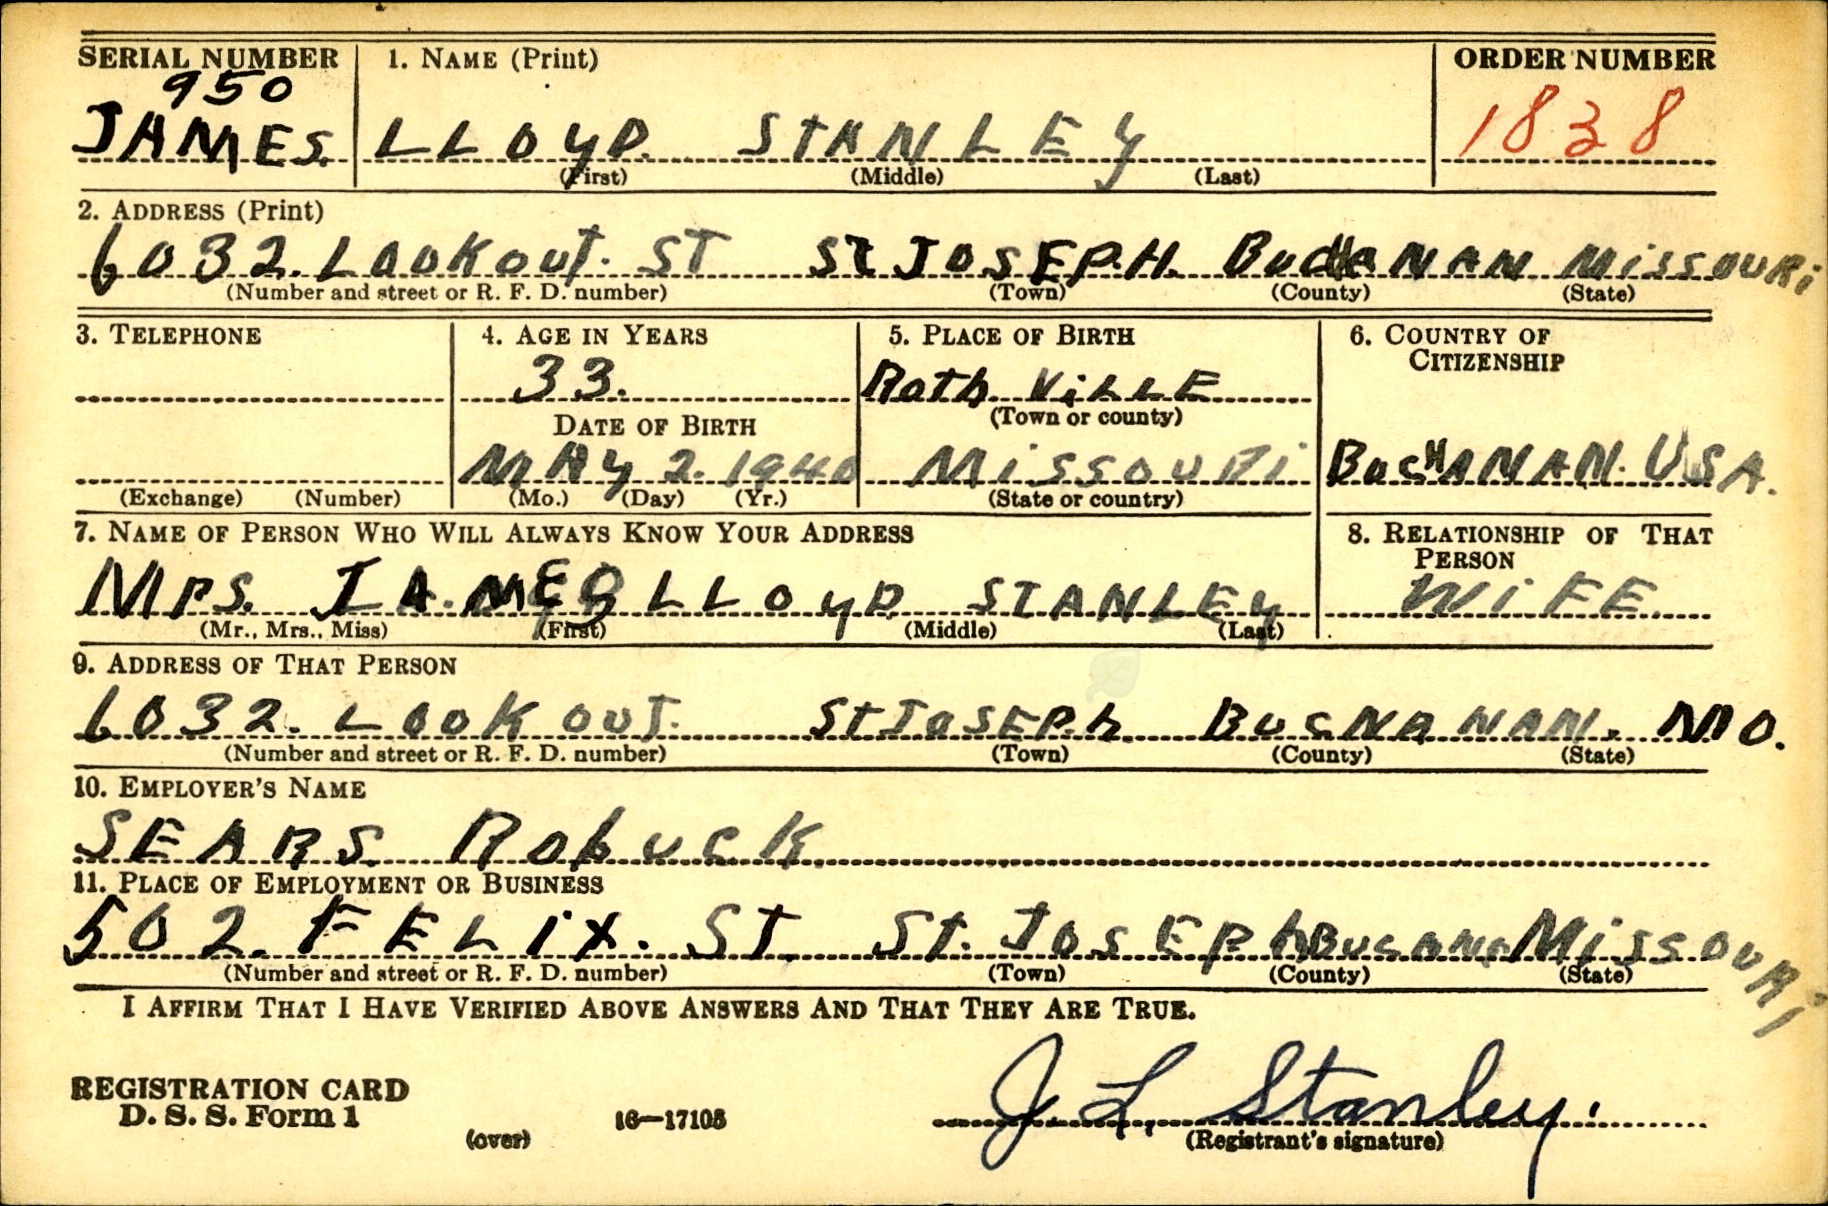 SERIAL NUMBER 1. NAME (Print) ORDER NUMBER
950
JAMES. LLOYD. STANLEY 1838
(First) (Middle) (Last)
2. ADDRESS (Print)
6032. LOOKOUT. ST ST JOSEPH. BUCHANAN MISSOURi
(Number and street or R. F. D. number) (Town) (County) (State)
3. TELEPHONE 4. AGE IN YEARS 5. PLACE OF BIRTH 6. COUNTRY OF CITIZENSHIP
33. Roth ViLLE
DATE OF BIRTH (Town or county)
MAY 2. 1940 MiSSOURi BucHANAN. USA.
(Exchange) (Number) (Mo.) (Day) (Yr.) (State or country)
7. NAME OF PERSON WHO WILL ALWAYS KNOW YOUR ADDRESS 8. RELATIONSHIP OF THAT PERSON
MRS. JAMES LLOYD STANLEY WiFE.
(Mr., Mrs., Miss) (First) (Middle) (Last)
9. ADDRESS OF THAT PERSON
6032. LOOKOUT. ST JOSEPh BUCNANAN. MO.
(Number and street or R. F. D. number) (Town) (County) (State)
10. EMPLOYER'S NAME
SEARS Robuck.
11. PLACE OF EMPLOYMENT OR BUSINESS
502. FELiX. ST. St. JOSEPh MiSSOURi
(Number and street or R. F. D. number) (Town) (County) (State)
I AFFIRM THAT I HAVE VERIFIED ABOVE ANSWERS AND THAT THEY ARE TRUE.
REGISTRATION CARD
D. S. S. Form 1 (over) 16—17105 J. L. Stanley.
(Registrant's signature)